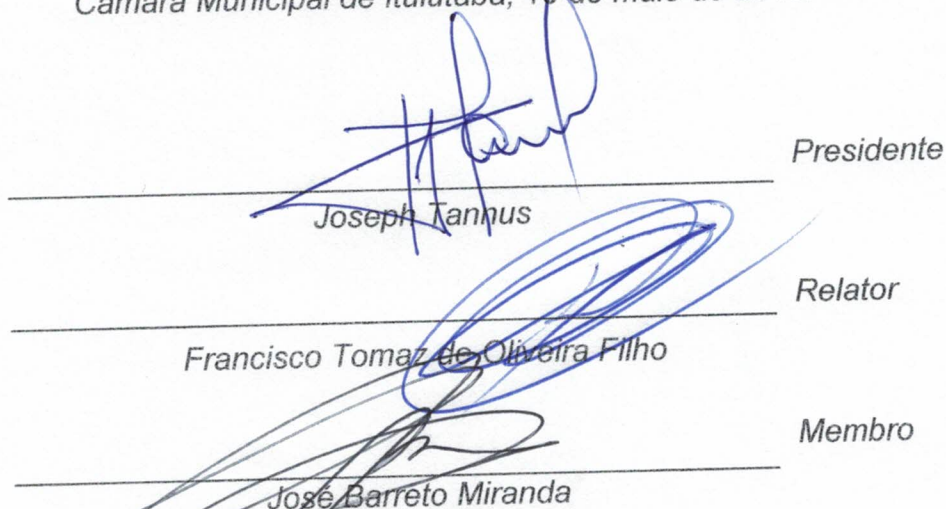 Câmara Municipal de Ituiutaba, de maio de
Presidente
Joseph Tannus
Relator
Francisco Tomaz de Oliveira Filho
Membro
José Barreto Miranda